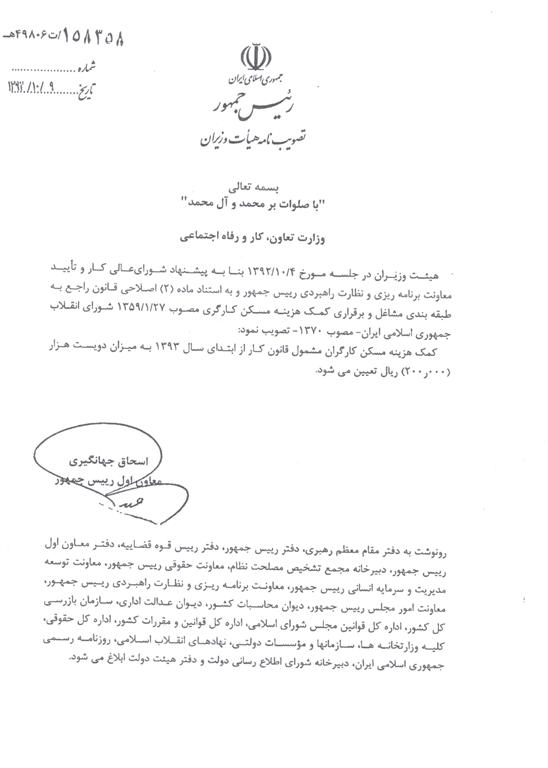 ۱۵۸۳۵۸/ت۴۹۸۰۶هـ
شماره....................
تاریخ........۱۳۹۲/۱۰/۰۹
جمهوری اسلامی ایران
رئیس جمهور
تصویب نامه هیأت وزیران
بسمه تعالی
"با صلوات بر محمد و آل محمد"
وزارت تعاون، کار و رفاه اجتماعی
هیئت وزیران در جلسه مورخ ۱۳۹۲/۱۰/۴ بنا به پیشنهاد شورای‌عالی کار و تأیید
معاونت برنامه ریزی و نظارت راهبردی رییس جمهور و به استناد ماده (۲) اصلاحی قانون راجع به
طبقه بندی مشاغل و برقراری کمک هزینه مسکن کارگری مصوب ۱۳۵۹/۱/۲۷ شورای انقلاب
جمهوری اسلامی ایران- مصوب ۱۳۷۰- تصویب نمود:
کمک هزینه مسکن کارگران مشمول قانون کار از ابتدای سال ۱۳۹۳ به میزان دویست هزار
(۲۰۰ر۰۰۰) ریال تعیین می شود.
اسحاق جهانگیری
معاون اول رییس جمهور
رونوشت به دفتر مقام معظم رهبری، دفتر رییس جمهور، دفتر رییس قوه قضاییه، دفتر معاون اول
رییس جمهور، دبیرخانه مجمع تشخیص مصلحت نظام، معاونت حقوقی رییس جمهور، معاونت توسعه
مدیریت و سرمایه انسانی رییس جمهور، معاونت برنامه ریزی و نظارت راهبردی رییس جمهور،
معاونت امور مجلس رییس جمهور، دیوان محاسبات کشور، دیوان عدالت اداری، سازمان بازرسی
کل کشور، اداره کل قوانین مجلس شورای اسلامی، اداره کل قوانین و مقررات کشور، اداره کل حقوقی،
کلیه وزارتخانه ها، سازمانها و مؤسسات دولتی، نهادهای انقلاب اسلامی، روزنامه رسمی
جمهوری اسلامی ایران، دبیرخانه شورای اطلاع رسانی دولت و دفتر هیئت دولت ابلاغ می شود.